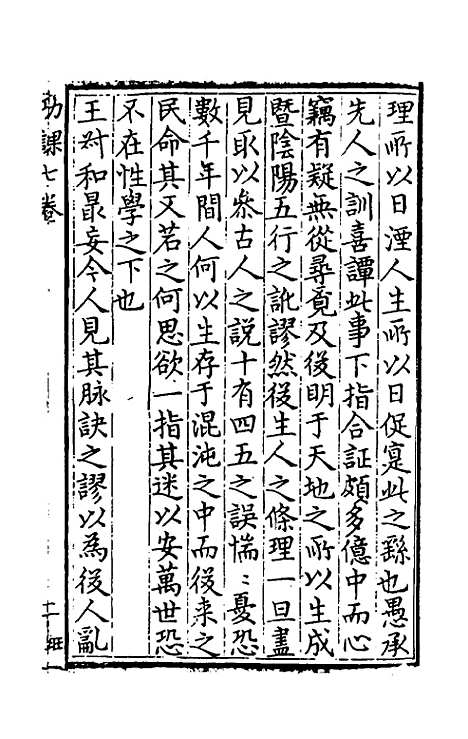 理所以日湮人生所以日促寔此之繇也愚承
先人之訓喜譚此事下指合証頗多億中而心
竊有疑無從尋竟及後明于天地之所以生成
暨陰陽五行之訛謬然後生人之條理一旦盡
見取以叅古人之說十有四五之誤惴〻憂恐
數千年間人何以生存于混沌之中而後来之
民命其又若之何思欲一指其迷以安萬世恐
不在性學之下也
王对和最妄今人見其脉訣之謬以為後人亂
功課七卷
十一 紙